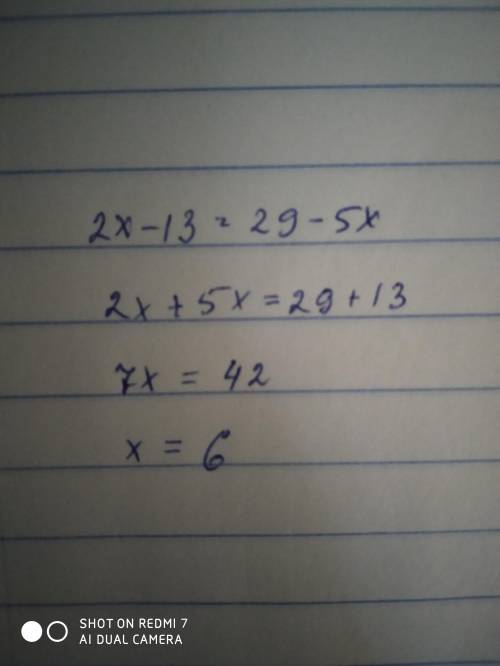 2x - 13 = 29 - 5x
2x + 5x = 29 + 13
7x = 42
x = 6
SHOT ON REDMI 7
AI DUAL CAMERA